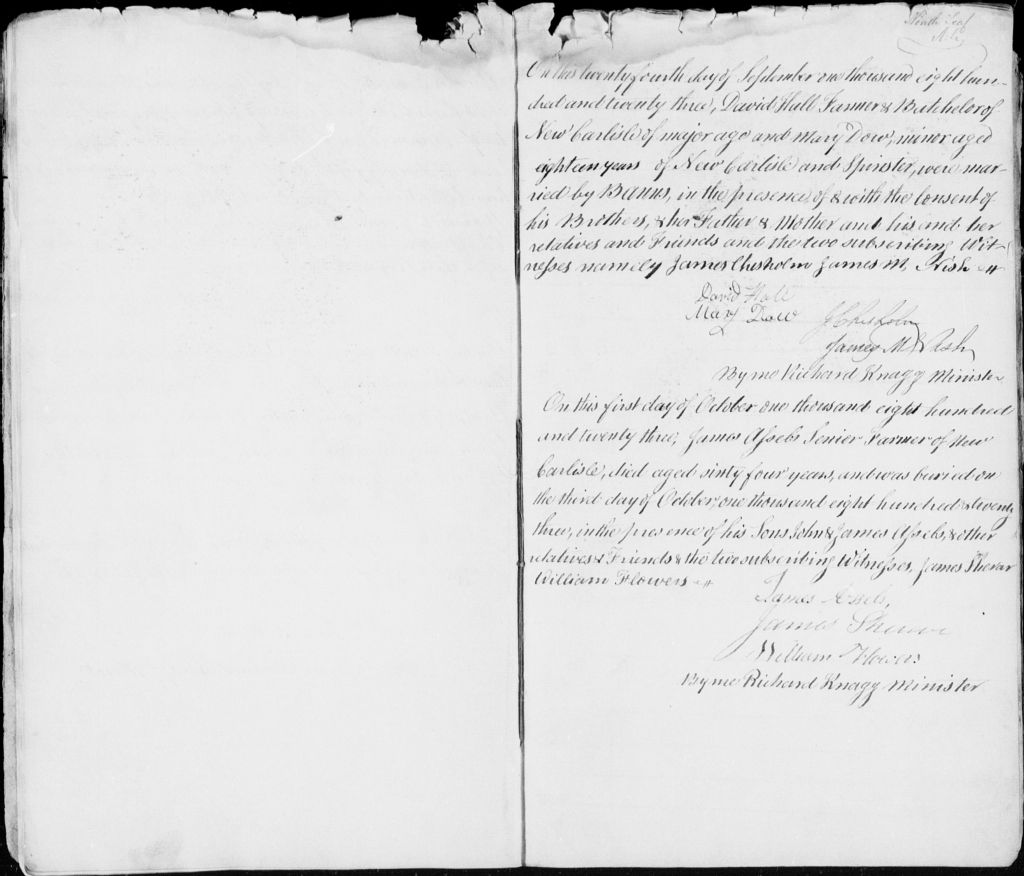 Leaf
On this twenty fourth day of September one thousand eight hun-
dred and twenty three, David Hall Farmer & Batchelor of
New Carlisle of major age and Mary Dow, minor aged
eighteen years of New Carlisle and Spinster, were mar-
ried by Banns, in the presence of & with the Consent of
his Brothers, & her Father & Mother and his and her
relatives and Friends and the two subscribing Wit-
nesses namely James Chisholm James M. Nish
David Hall
Mary Dow J Chisholm
James McNish
By me Richard Knagg Minister
On this first day of October one thousand eight hundred
and twenty three, James Assels Senier Farmer of New
Carlisle, died aged sixty four years, and was buried on
the third day of October, one thousand eight hundred & twenty
three, in the presence of his Sons John & James Assels, & other
relatives & Friends & the two subscribing Witnesses, James Sherar
William Flowers
James Assels,
James
William Flowers
By me Richard Knagg Minister